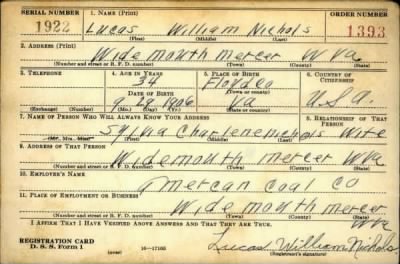 SERIAL NUMBER 1. NAME (Print) ORDER NUMBER
1922 Lucas William Nichols 1393
(First) (Middle) (Last)
2. ADDRESS (Print)
Widemouth mercer W Va
(Number and street or R. F. D. number) (Town) (County) (State)
3. TELEPHONE 4. AGE IN YEARS 5. PLACE OF BIRTH 6. COUNTRY OF CITIZENSHIP
34 Floyded
DATE OF BIRTH (Town or county)
9. 29 1906 Va U.S.A.
(Exchange) (Number) (Mo.) (Day) (Yr.) (State or country)
7. NAME OF PERSON WHO WILL ALWAYS KNOW YOUR ADDRESS 8. RELATIONSHIP OF THAT PERSON
Sylvia Charlene nichols Wife
(Mr., Mrs., Miss) (First) (Middle) (Last)
9. ADDRESS OF THAT PERSON
Widemouth mercer WVa
(Number and street or R. F. D. number) (Town) (County) (State)
10. EMPLOYER'S NAME
American Coal Co
11. PLACE OF EMPLOYMENT OR BUSINESS
Widemouth mercer WVa
(Number and street or R. F. D. number) (Town) (County) (State)
I AFFIRM THAT I HAVE VERIFIED ABOVE ANSWERS AND THAT THEY ARE TRUE.
REGISTRATION CARD
D. S. S. Form 1 (over) 16—17105 Lucas William Nichols
(Registrant's signature)